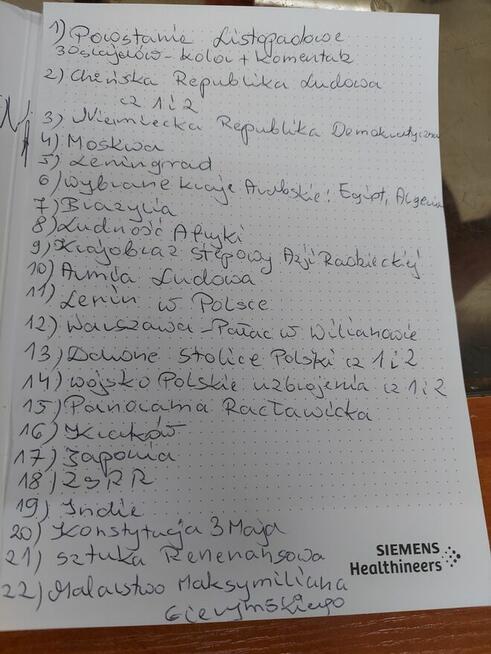 1) Powstanie Listopadowe
30 slajdów - kolor + komentarz
2) Chińska Republika Ludowa
cz 1 i 2
3) Niemiecka Republika Demokratyczna
4) Moskwa
5) Leningrad
6) Wybrane kraje Arabskie: Egipt, Algeria
7) Brazylia
8) Ludność Afryki
9) Krajobraz stepowy Azji Radzieckiej
10) Armia Ludowa
11) Lenin w Polsce
12) Warszawa - Pałac w Wilianowie
13) Dawne Stolice Polski cz 1 i 2
14) Wojsko Polskie uzbrojenia cz 1 i 2
15) Panorama Racławicka
16) Kraków
17) Japonia
18) ZSRR
19) Indie
20) Konstytucja 3 Maja
21) Sztuka Renenansowa
22) Malarstwo Maksymiliana
Gierymskiego
SIEMENS
Healthineers